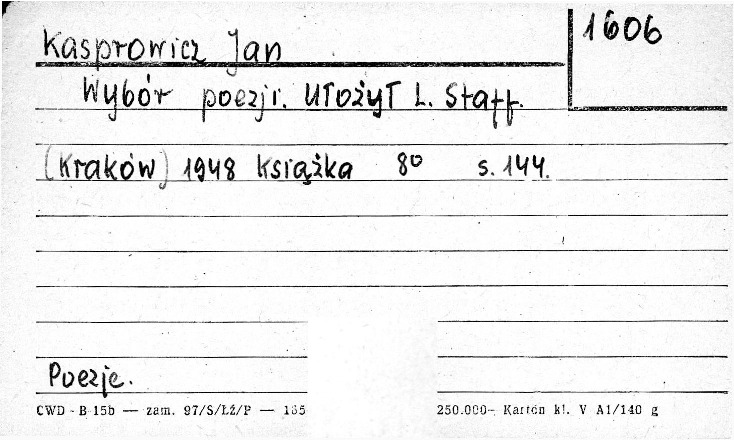 1606
Kasprowicz Jan
Wybór poezji. Ułożył L. Staff.
(Kraków) 1948 Książka 8° s. 144.
Poezje.
CWD - B 15b — zam. 97/S/Łź/P — 165 250.000— Karton kl. V A1/140 g